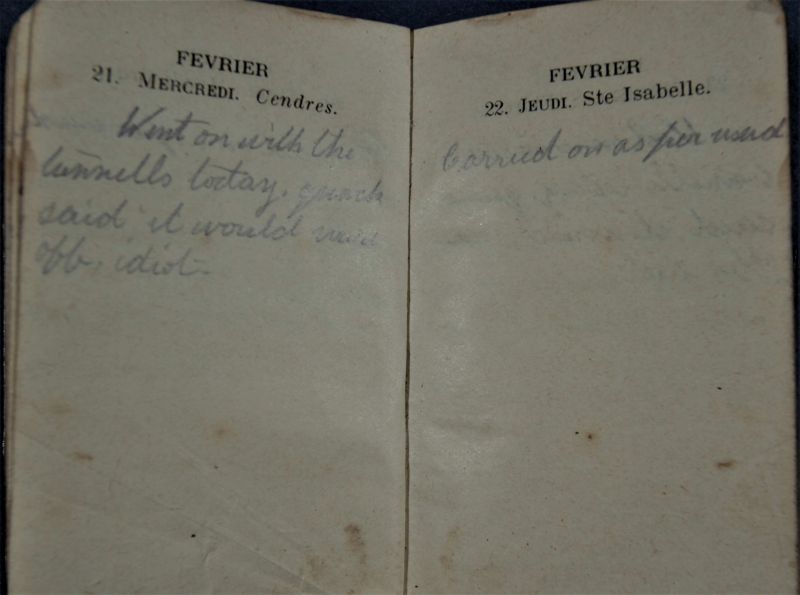 FEVRIER
21. MERCREDI. Cendres.
Went on with the
tunnells today, quack
said it would wear
off, idiot.
FEVRIER
22. JEUDI. Ste Isabelle.
Carried on as per usual